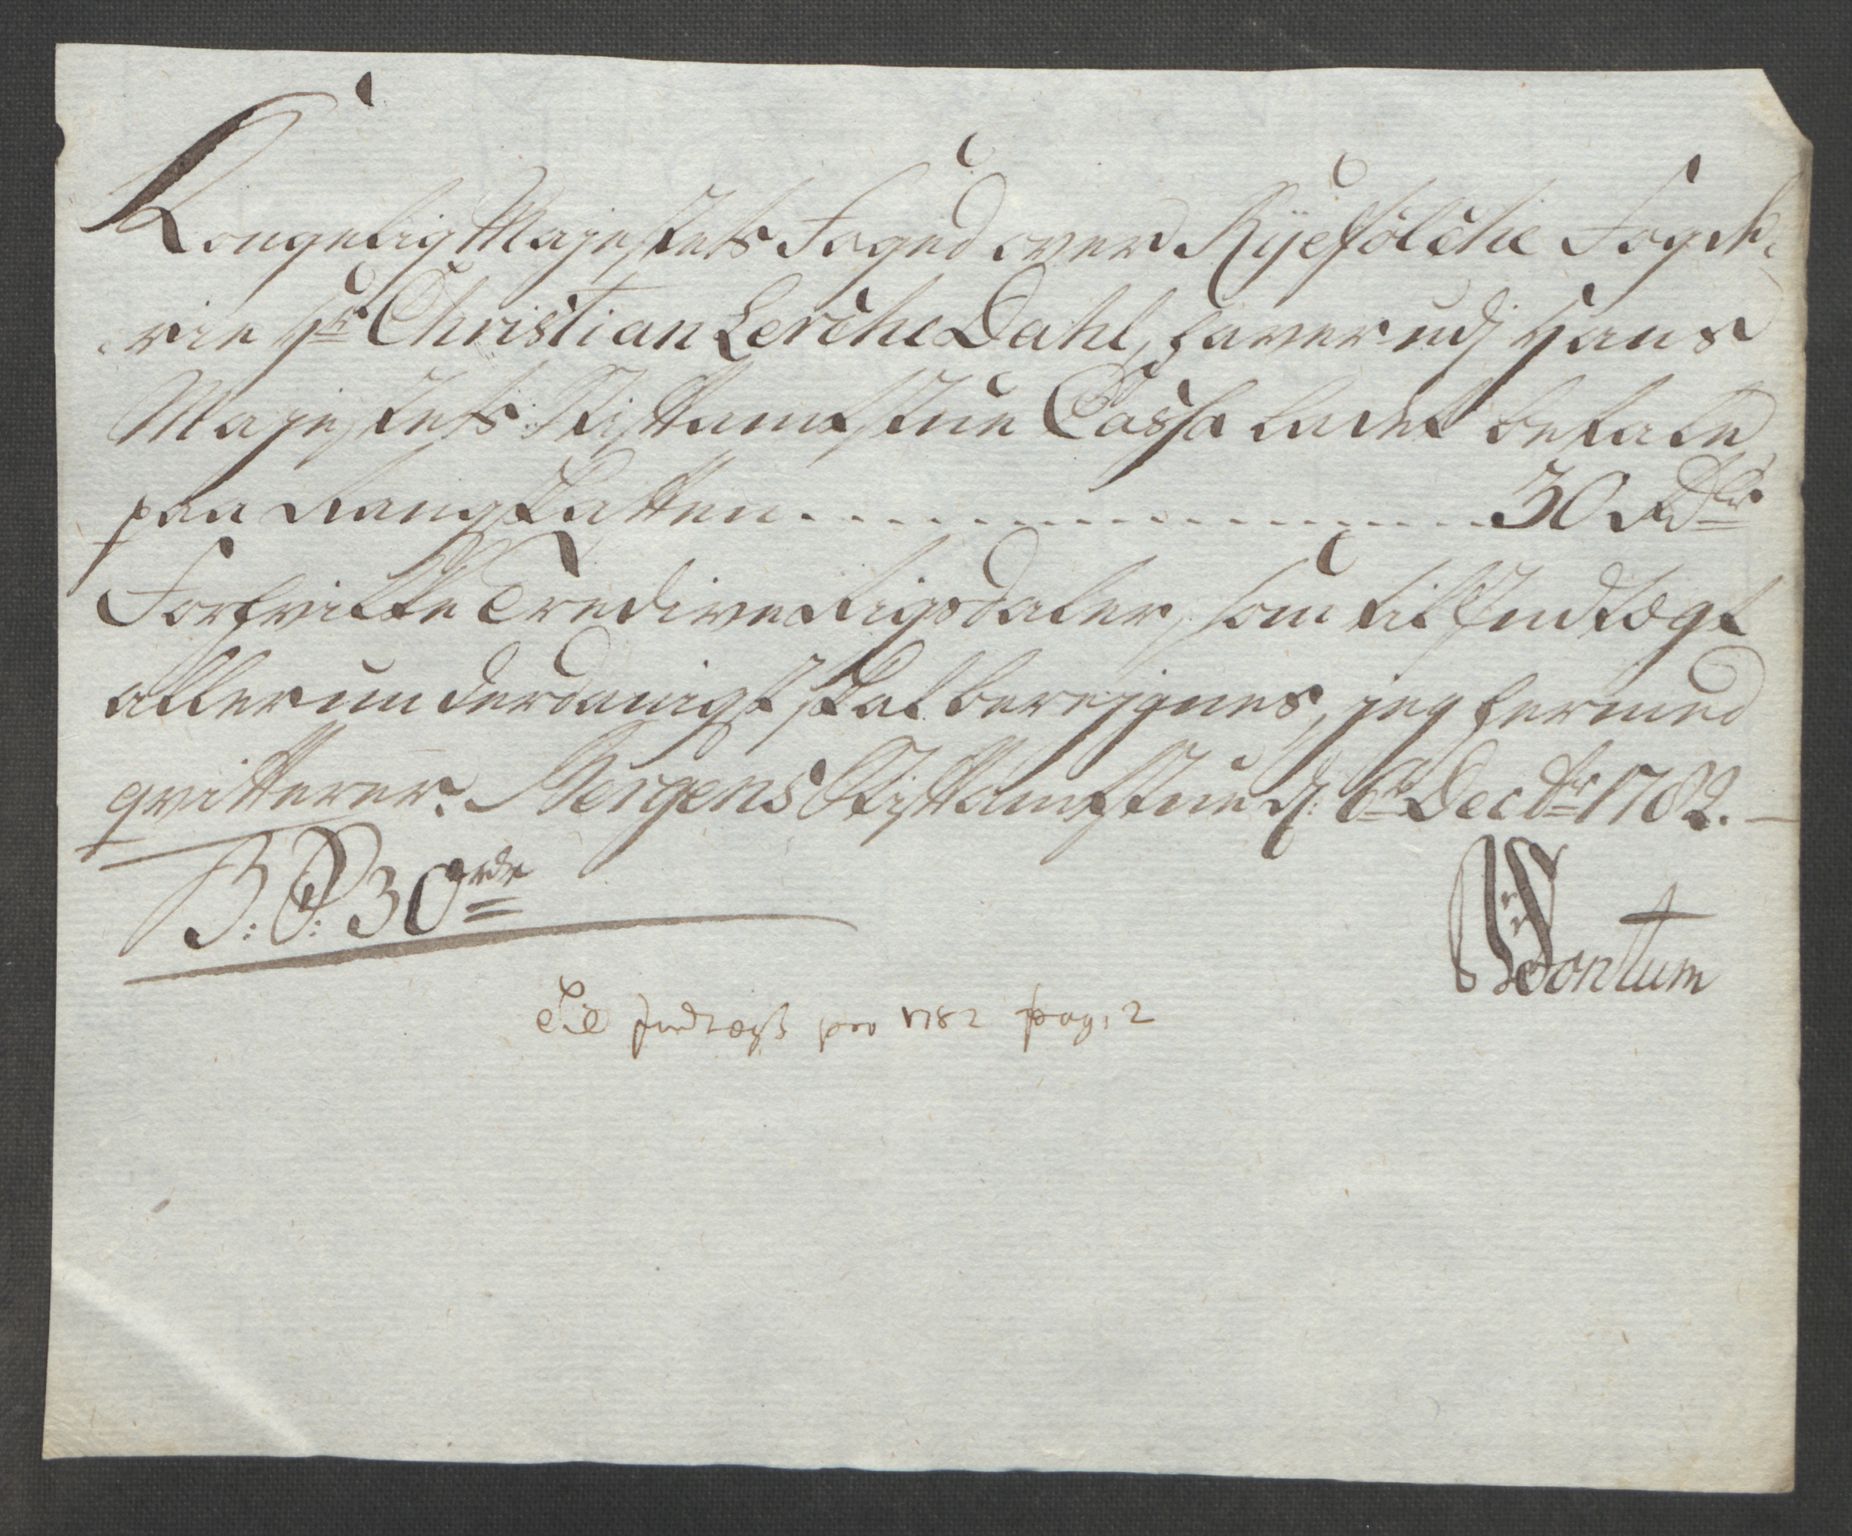 Kongelig Mayestets Foged over Ryefölche Fogde-
rie Hr Christian Lerche Dahl, haver udj Hans
Mayestets Stiftamtstue Cassa ladet betale
paa Rangskatten . . . . . . . . . . 30 Rdlr
Forskrifne Tredive Rigsdaler, som til Indtægt
allerunderdanigst skal beregnes, jeg hermed
qvitterer. Bergens Stiftamtstue d: 6te Decbr 1782. —
B: C: 30 rdr
Fontum
Til Indtægt pro 1782 pag: 2